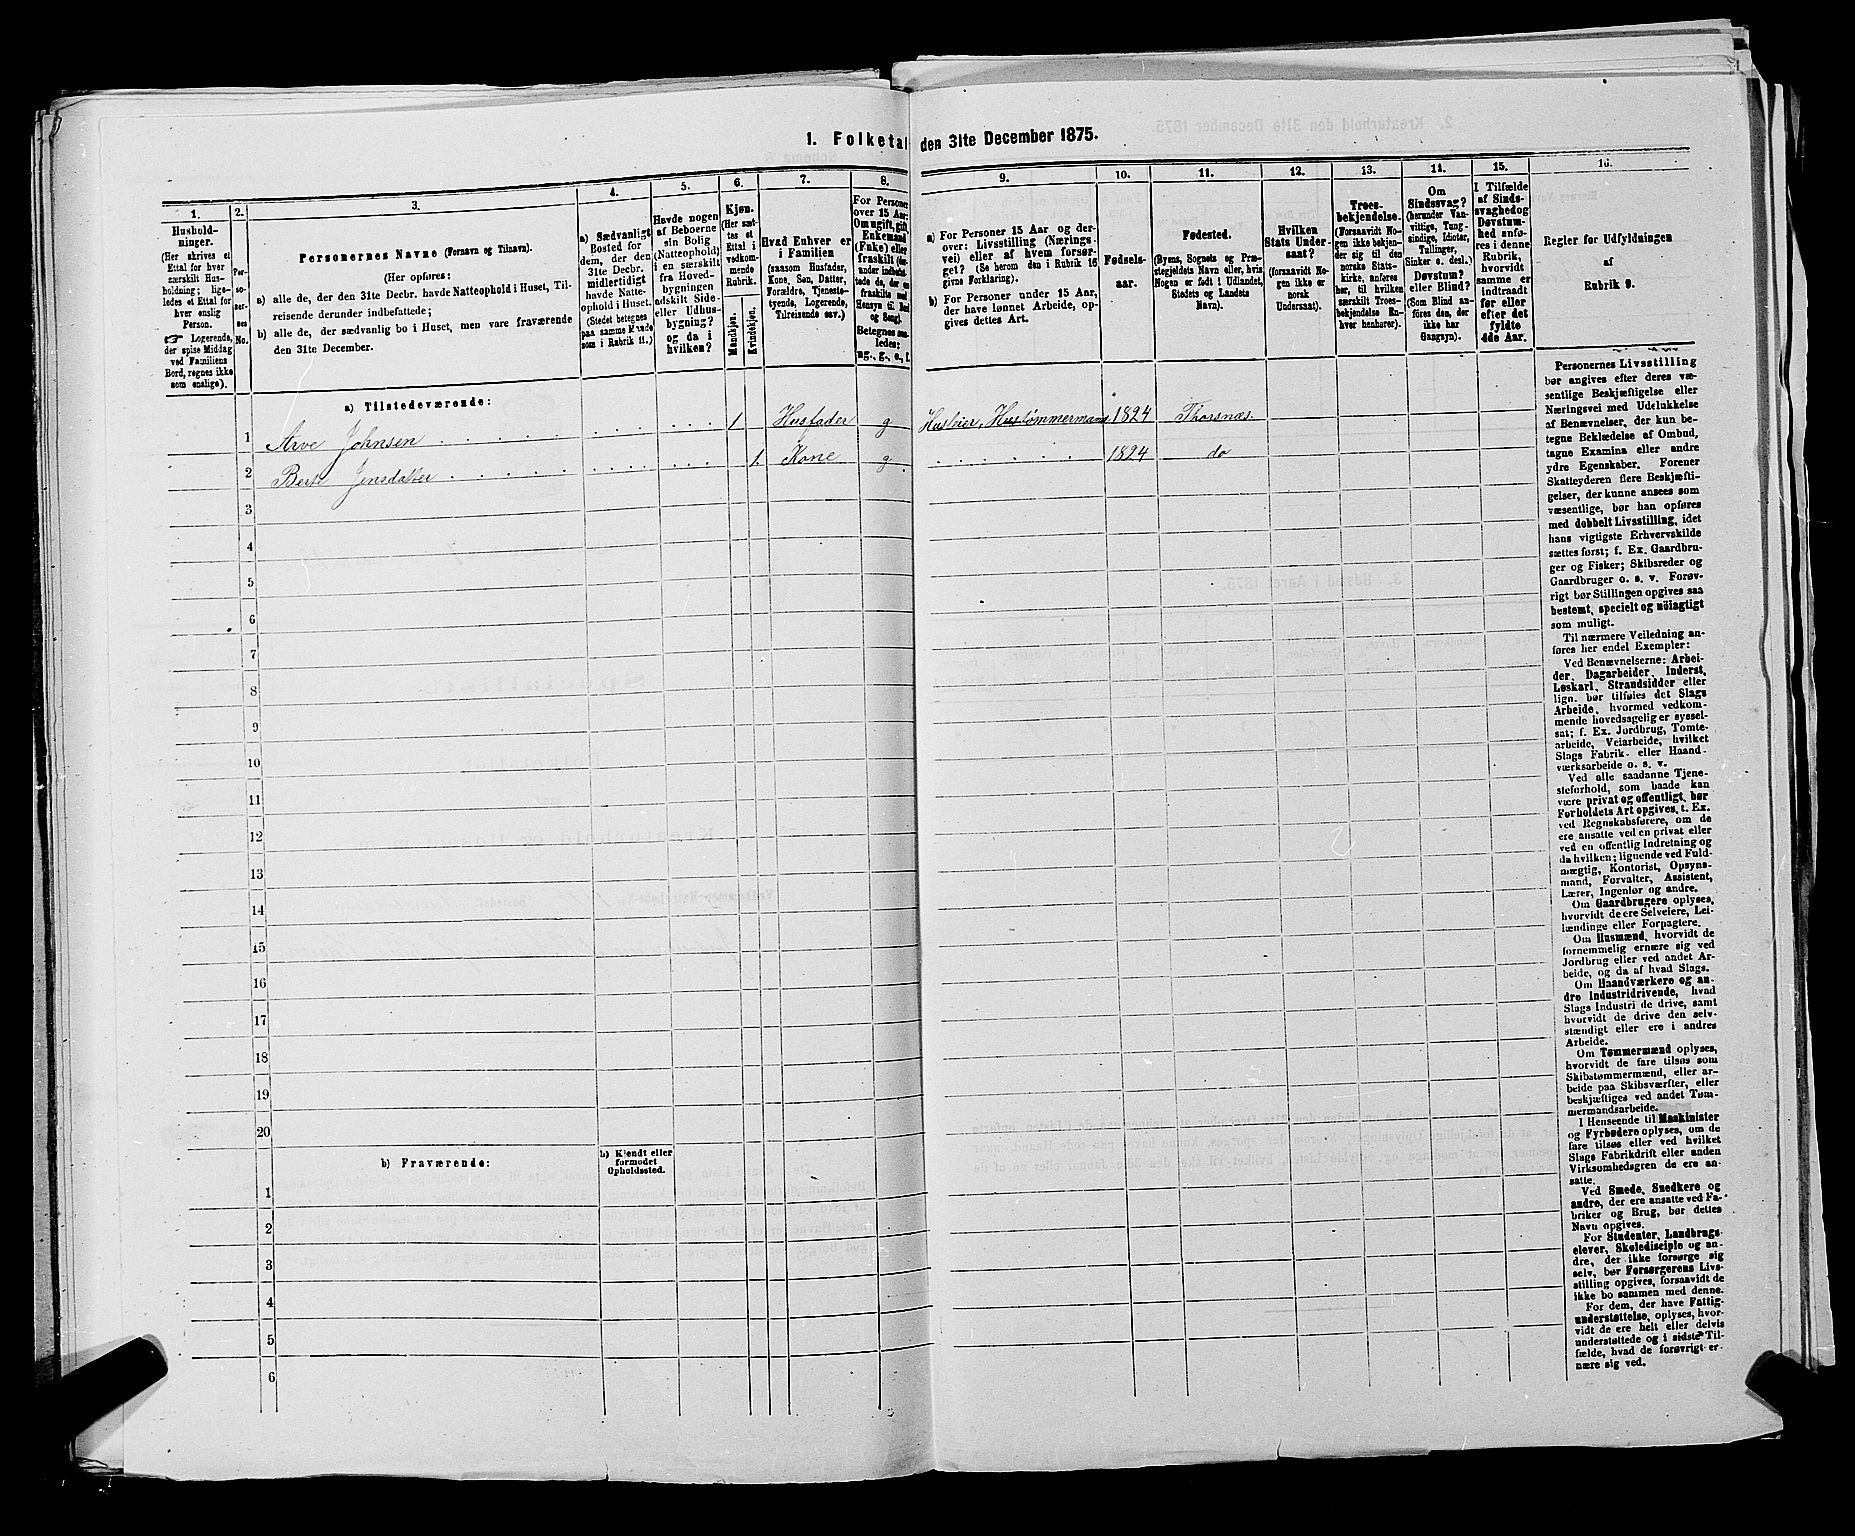 1. Folketal den 31te December 1875.
1.
2.
3.
4.
5.
6.
7.
8.
9.
10.
11.
12.
13.
14.
15.
16.
Hushold-
ninger.
(Her skrives et
Ettal for hver
særskilt Hus-
holdning; lige-
ledes et Ettal for
hver enslig
Person.
☞ Logerende,
der spise Middag
ved Familiens
Bord, regnes ikke
som enslige).
Per-
so-
ner-
nes
No.
Personernes Navne (Fornavn og Tilnavn).
(Her opføres:
a) alle de, der den 31te Decbr. havde Natteophold i Huset, Til-
reisende derunder indbefattede;
b) alle de, der sædvanlig bo i Huset, men vare fraværende
den 31te December.
a) Sædvanligt
Bosted for
dem, der den
31te Decbr.
midlertidigt
havde Natte-
ophold i Huset.
(Stedet betegnes
paa samme Maade
som i Rubrik 11.)
Havde nogen
af Beboerne
sin Bolig
(Natteophold)
i en særskilt
fra Hoved-
bygningen
adskilt Side-
eller Udhus-
bygning?
og da i
hvilken?
Kjøn.
(Her sæt-
tes et
Ettal i
vedkom-
mende
Rubrik.
Mandkjøn.
Kvindekjøn.
Hvad Enhver er
i Familien
(saasom Husfader,
Kone, Søn, Datter,
Forældre, Tjeneste-
tyende, Logerende,
Tilreisende osv.)
For Personer
over 15 Aar:
Om ugift, gift,
Enkemand
(Enke) eller
fraskilt
Betegnes saa-
ledes:
ug., g., e., f.
a) For Personer 15 Aar og der-
over: Livsstilling (Nærings-
vei) eller af hvem forsør-
get? (Se herom den i Rubrik 16
givne Forklaring).
b) For Personer under 15 Aar,
der have lønnet Arbeide, op-
gives dettes Art.
Fødsels-
aar.
Fødested.
(Byens, Sognets og Præ-
stegjeldets Navn eller, hvis
Nogen er født i Udlandet,
Stedets og Landets
Navn).
Hvilken
Stats Under-
saat?
(forsaavidt No-
gen ikke er
norsk
Undersaat).
Troes-
bekjendelse.
(Forsaavidt No-
gen ikke bekjen-
der sig til den
norske Stats-
kirke, anføres
her, til hvilken
særskilt Troes-
bekjendelse En-
hver henhører).
Om
Sindssvag?
(herunder Van-
vittige, Tung-
sindige, Idioter,
Tullinger,
Sinker o. desl.)
Døvstum?
eller Blind?
(Som Blind an-
føres den, der
ikke har
Gangsyn).
I Tilfælde
af Sinds-
svaghed og
Døvstum-
hed anfø-
res i denne
Rubrik,
hvorvidt
samme er
indtraadt
før eller
efter det
fyldte
4de Aar.
Regler for Udfyldningen
af
Rubrik 9.
a) Tilstedeværende:
1 Arve Johnsen 1 Husfader g Huseier, Hustømmermand 1824 Thorsnæs.
2 Berte Jensdatter 1. Kone g 1824 do
3
4
5
6
7
8
9
10
11
12
13
14
15
16
17
18
19
20
b) Fraværende:
b) Kjendt eller
formodet
Opholdssted.
1
2
3
4
5
6
Personernes Livsstilling
bør angives efter deres væ-
sentlige Beskjæftigelse eller
Næringsvei med Udelukkelse
af Benævnelser, der kun be-
tegne Beklædelse af Ombud,
tagne Examina eller andre
ydre Egenskaber. Forener
Skatteyderen flere Beskjæfti-
gelser, der kunne ansees som
væsentlige, bør han opføres
med dobbelt Livsstilling, idet
hans vigtigste Erhvervskilde
sættes først; f. Ex. Gaardbru-
ger og Fisker; Skibsreder og
Gaardbruger o. s. v. Forøv-
rigt bør Stillingen opgives saa
bestemt, specielt og nöiagtigt
som muligt.
Til nærmere Veiledning an-
føres her endel Exempler:
Ved Benævnelserne: Arbei-
der, Dagarbeider, Inderst,
Løskarl, Strandsidder eller
lign. bør tilføies det Slags
Arbeide, hvormed vedkom-
mende hovedsagelig er syssel-
sat; f. Ex. Jordbrug, Tomte-
arbeide, Veiarbeide, hvilket
Slags Fabrik- eller Haand-
værksarbeide o. s. v.
Ved alle saadanne Tjene-
steforhold, som baade kan
være privat og offentligt, bør
Forholdets Art opgives, t. Ex.
ved Regnskabsførere, om de
ere ansatte ved en privat eller
ved en offentlig Indretning og
da hvilken; lignende ved Fuld-
mægtig, Kontorist, Opsyns-
mand, Forvalter, Assistent,
Lærer, Ingeniør og andre.
Om Gaardbrugere oplyses,
hvorvidt de ere Selveiere, Lei-
lændinge eller Forpagtere.
Om Husmænd, hvorvidt de
fornemmelig ernære sig ved
Jordbrug eller ved andet Ar-
beide, og da af hvad Slags.
Om Haandværkere og an-
dre Industridrivende, hvad
Slags Industri de drive, samt
hvorvidt de drive den selv-
stændigt eller ere i andres
Arbeide.
Om Tømmermænd oplyses,
hvorvidt de fare tilsøs som
Skibstømmermænd, eller ar-
beide paa Skibsværfter, eller
beskjæftiges ved andet Tøm-
mermandsarbeide.
I Henseende til Maskinister
og Fyrbødere oplyses, om de
fare tilsøs eller ved hvilket
Slags Fabrikdrift eller anden
Virksomhedsgren de ere an-
satte.
Ved Smede, Snedkere og
andre, der ere ansatte ved Fa-
briker og Brug, bør dettes
Navn opgives.
For Studenter, Landbrugs-
elever, Skoledisciple og an-
dre, der ikke forsørge sig
selv, bør Forsørgerens Livs-
stilling opgives, forsaavidt de
ikke bo sammen med denne.
For dem, der have Fattig-
understøttelse, oplyses, hvor-
vidt de ere helt eller delvis
understøttede og i sidste Til-
fælde, hvad de forøvrigt er-
nære sig ved.